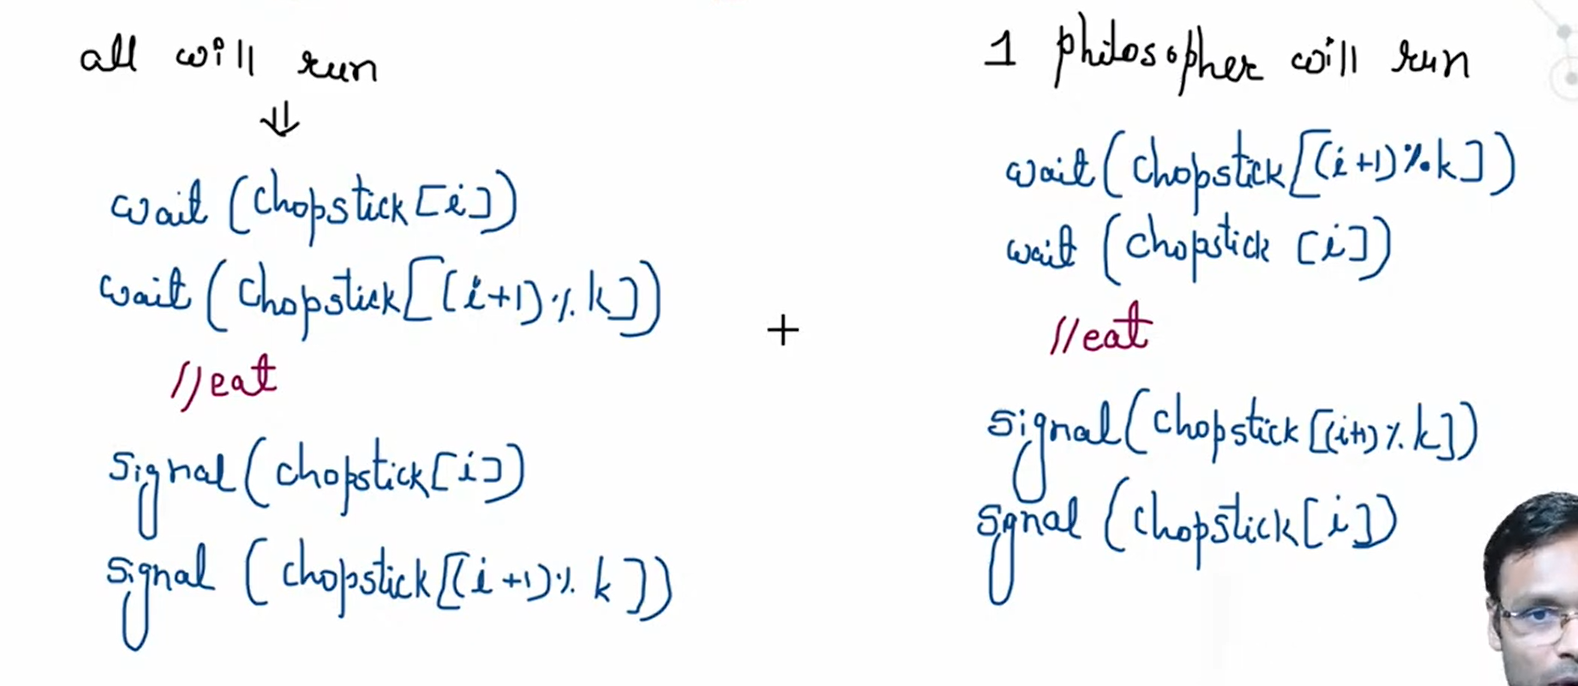 all will run
⇓
wait (chopstick[i])
wait (chopstick[(i+1)%k])
//eat
signal (chopstick[i])
signal (chopstick[(i+1)%k])
+
1 philosopher will run
wait (chopstick[(i+1)%k])
wait (chopstick [i])
//eat
signal (chopstick[(i+1)%k])
signal (chopstick[i])